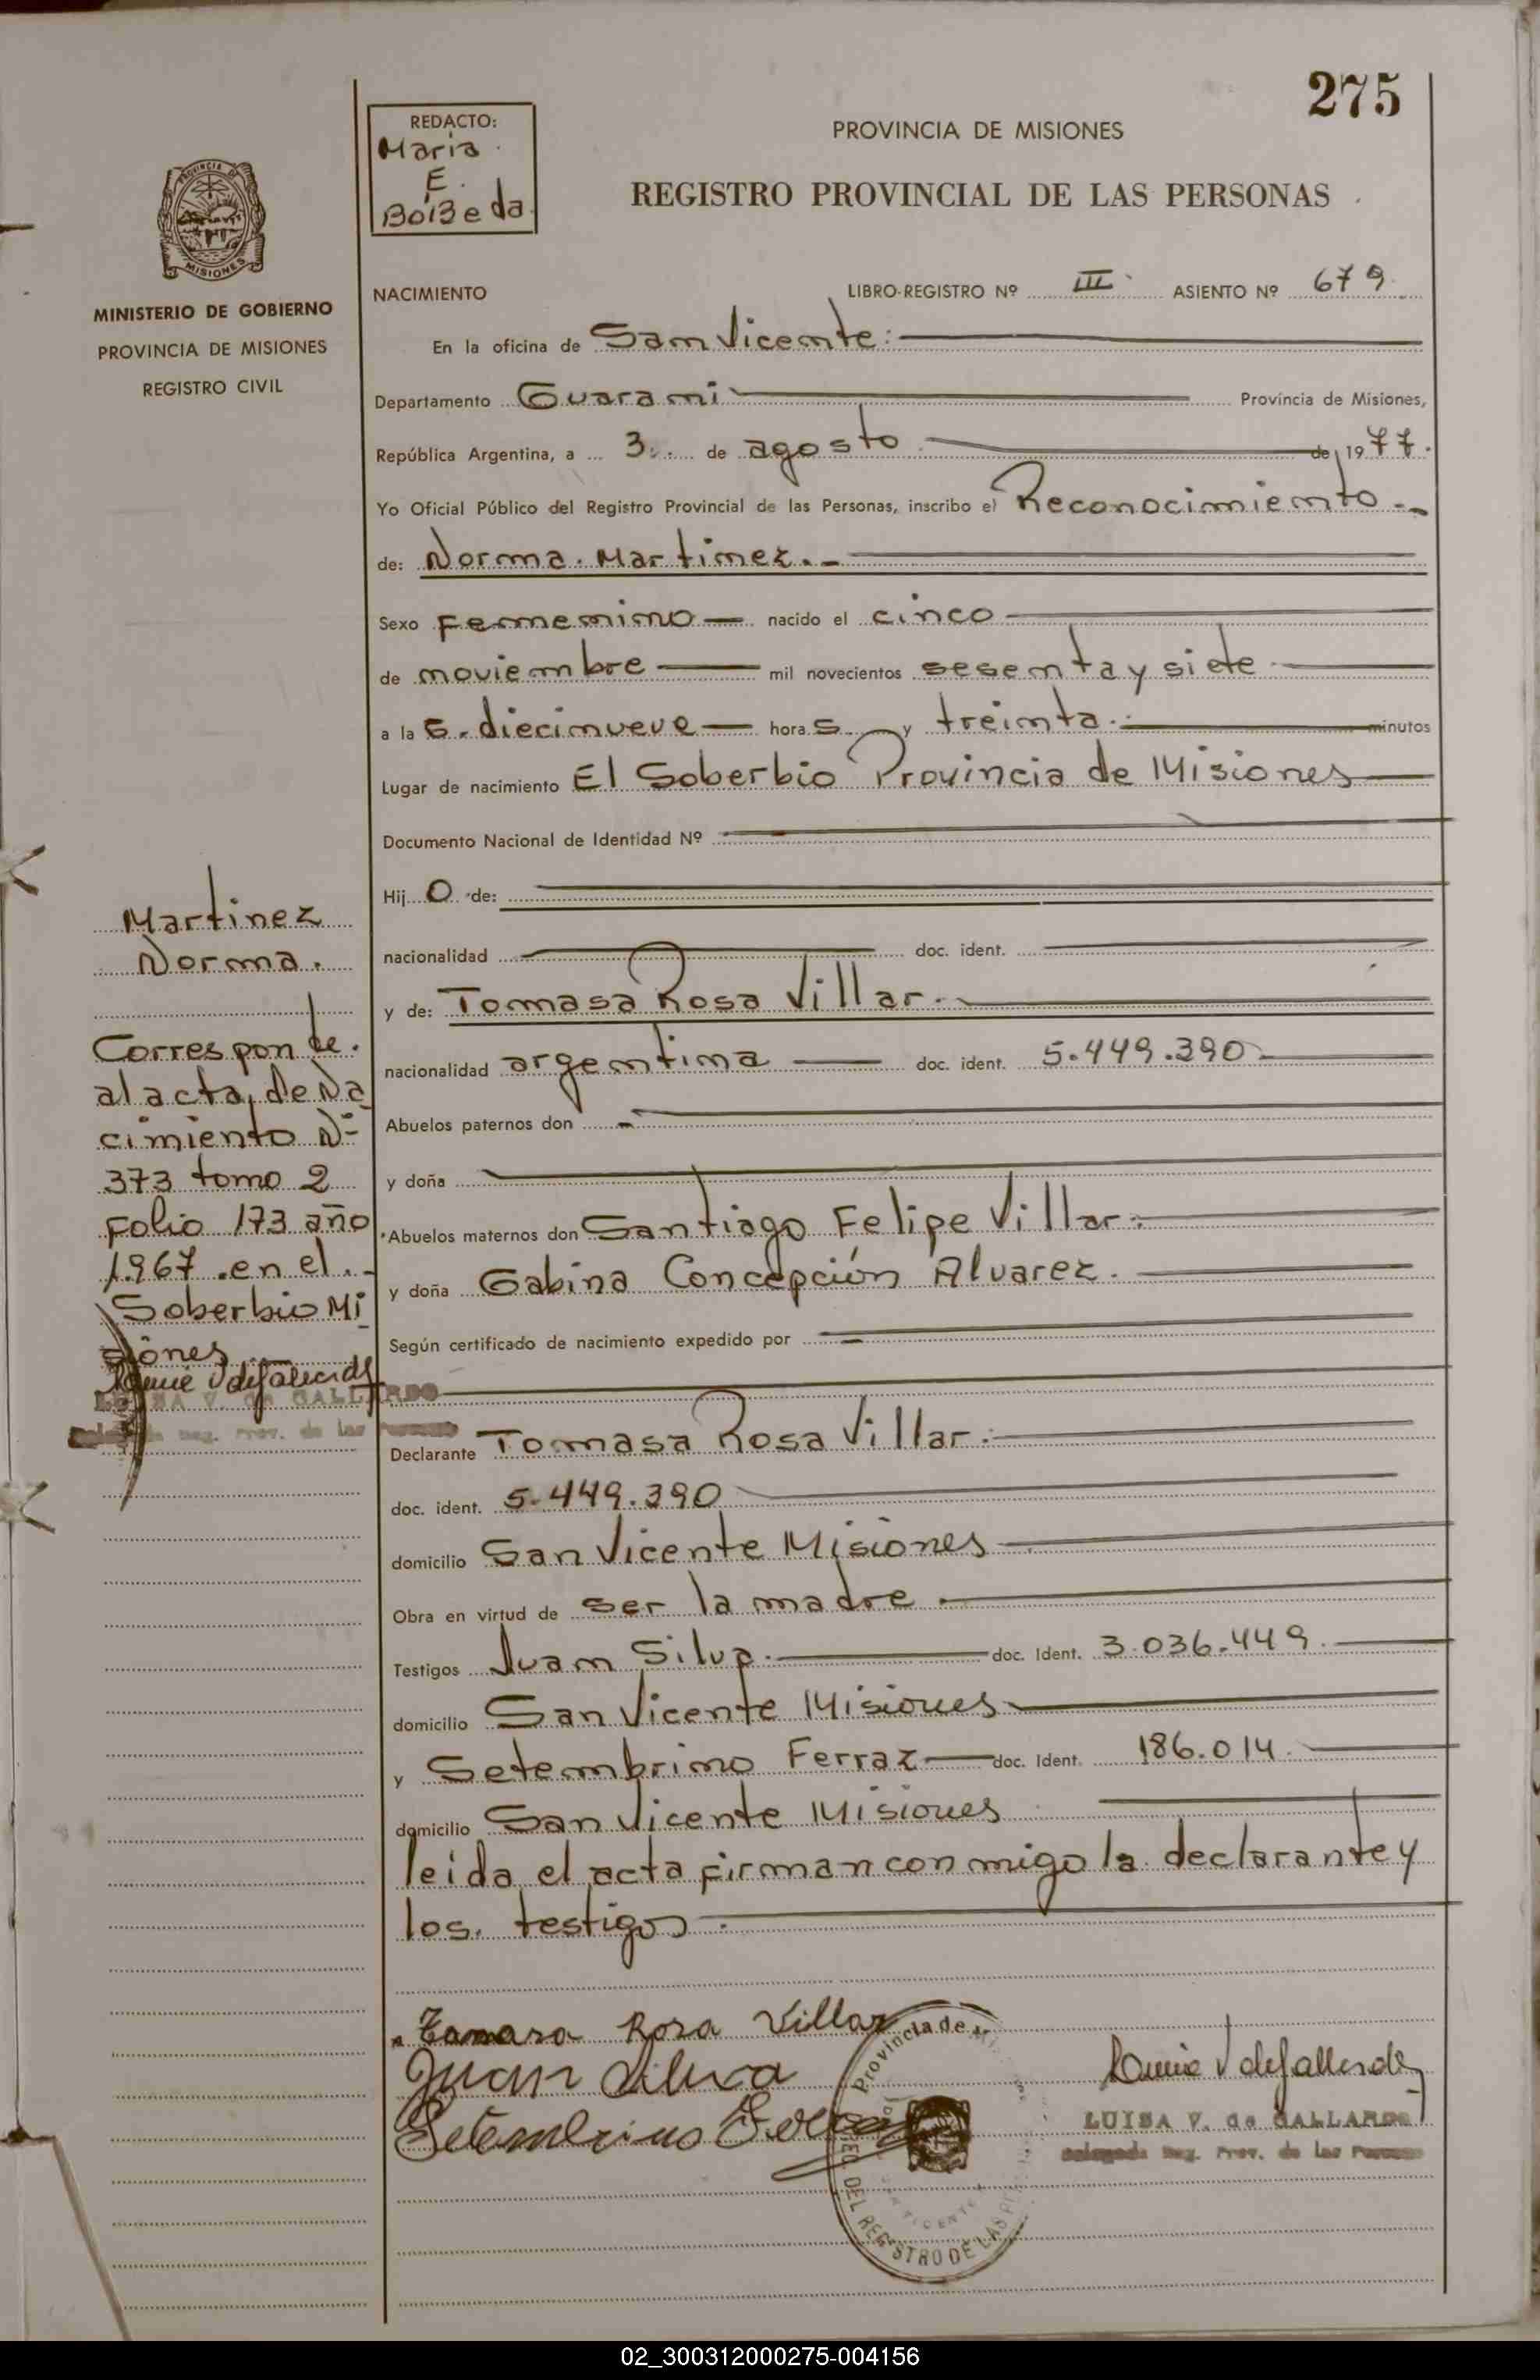 275
REDACTO:
Maria
E.
BoiBeda
PROVINCIA DE MISIONES
REGISTRO PROVINCIAL DE LAS PERSONAS
PROVINCIA DE
MISIONES
MINISTERIO DE GOBIERNO
PROVINCIA DE MISIONES
REGISTRO CIVIL
NACIMIENTO LIBRO-REGISTRO Nº III ASIENTO Nº 679
En la oficina de San Vicente.
Departamento Guarani Provincia de Misiones,
República Argentina, a 3 de agosto de 1977.
Yo Oficial Público del Registro Provincial de las Personas, inscribo el Reconocimiento
de: Norma Martinez.
Sexo femenino nacido el cinco
de noviembre mil novecientos sesenta y siete
a la s. diecinueve hora s y treinta minutos
Lugar de nacimiento El Soberbio Provincia de Misiones
Documento Nacional de Identidad Nº
Hij o de:
nacionalidad doc. ident.
y de: Tomasa Rosa Villar.
nacionalidad argentina doc. ident. 5.449.390
Abuelos paternos don
y doña
Abuelos maternos don Santiago Felipe Villar.
y doña Gabina Concepción Alvarez.
Según certificado de nacimiento expedido por
Declarante Tomasa Rosa Villar.
doc. ident. 5.449.390
domicilio San Vicente Misiones
Obra en virtud de ser la madre
Testigos Juan Silva. doc. Ident. 3.036.449.
domicilio San Vicente Misiones
y Setembrino Ferraz doc. Ident. 186.014.
domicilio San Vicente Misiones
leida el acta firman conmigo la declarante y
los testigos.
Martinez
Norma.
Corresponde.
al acta de Na
cimiento Nº
373 tomo 2
Folio 173 año
1.967 en el
Soberbio Mi
siones
LUISA V. de GALLARDO
Delegada Reg. Prov. de las Personas
Tomasa Rosa Villar
Juan Silva
Setembrino Ferraz
Provincia de
DEL REGISTRO DE LAS
LUISA V. de GALLARDO
Delegada Reg. Prov. de las Personas
02_300312000275-004156